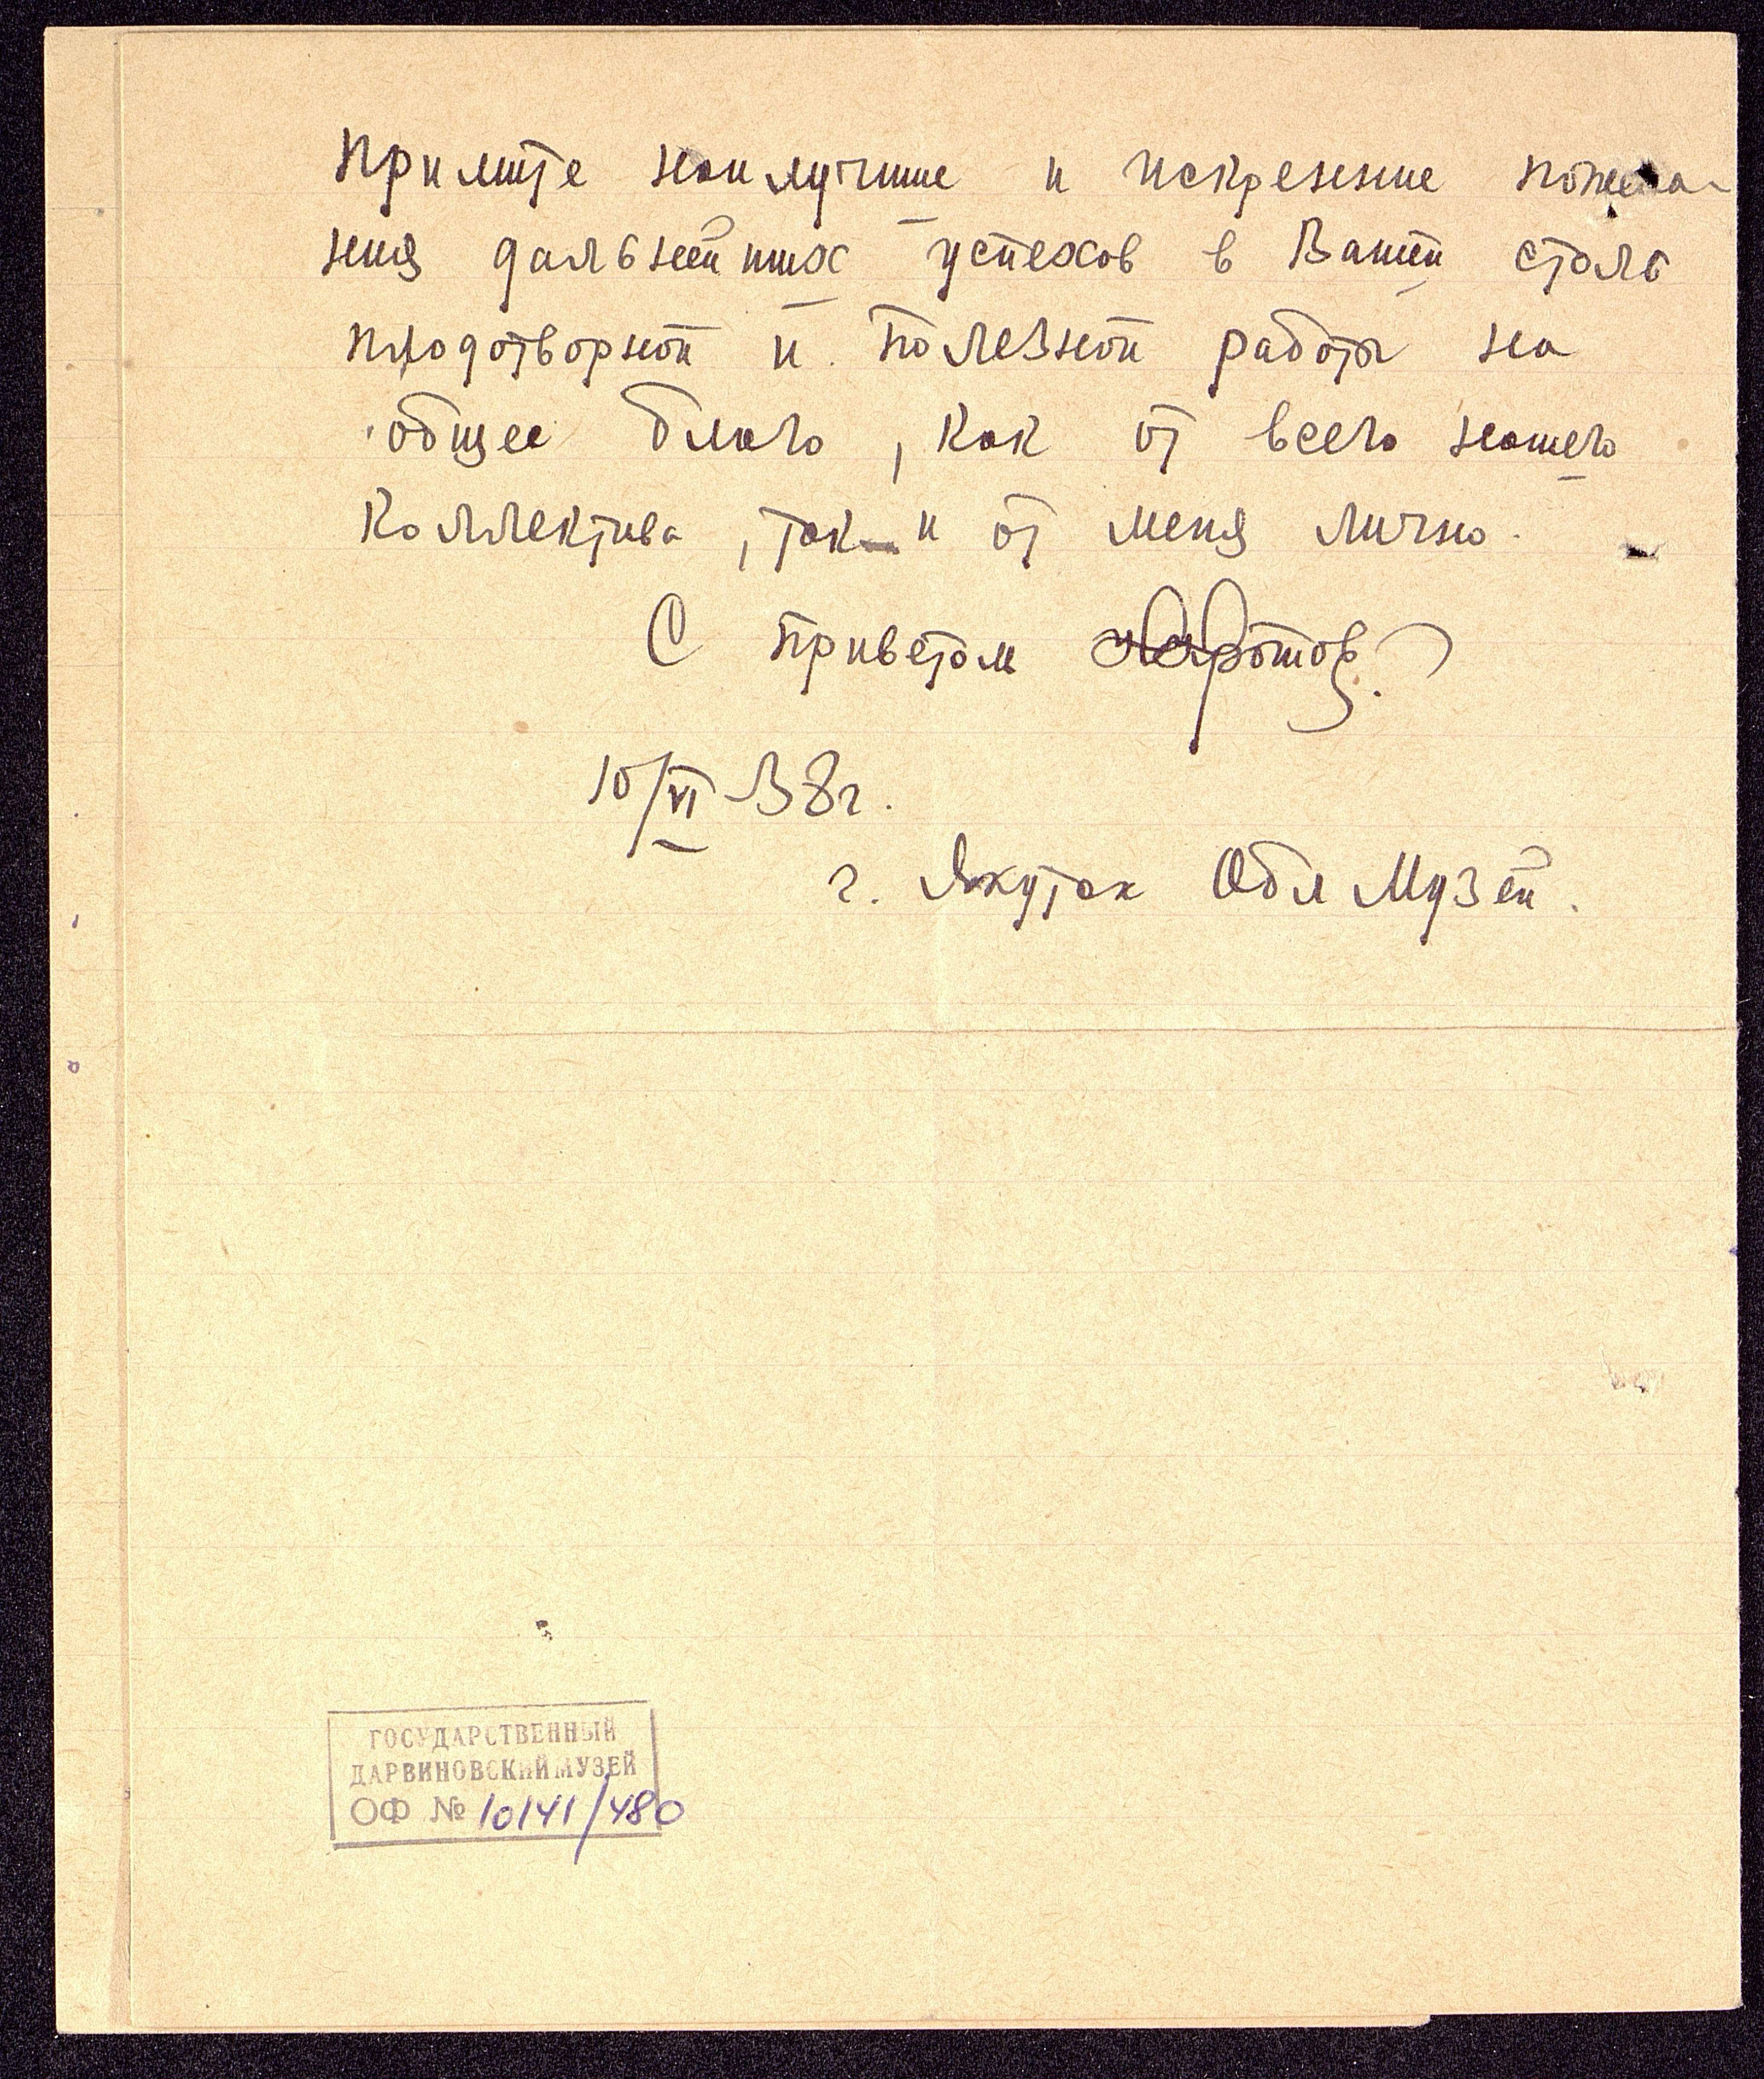 Примите наилучшие и искренние пожела-
ния дальнейших успехов в Вашей столь
плодотворной и полезной работы на
общее благо, как от всего нашего
коллектива, так и от меня лично.
С приветом
10/VI 38 г.
г. Якутск Обл Музей.
ГОСУДАРСТВЕННЫЙ
ДАРВИНОВСКИЙ МУЗЕЙ
ОФ № 10141/480